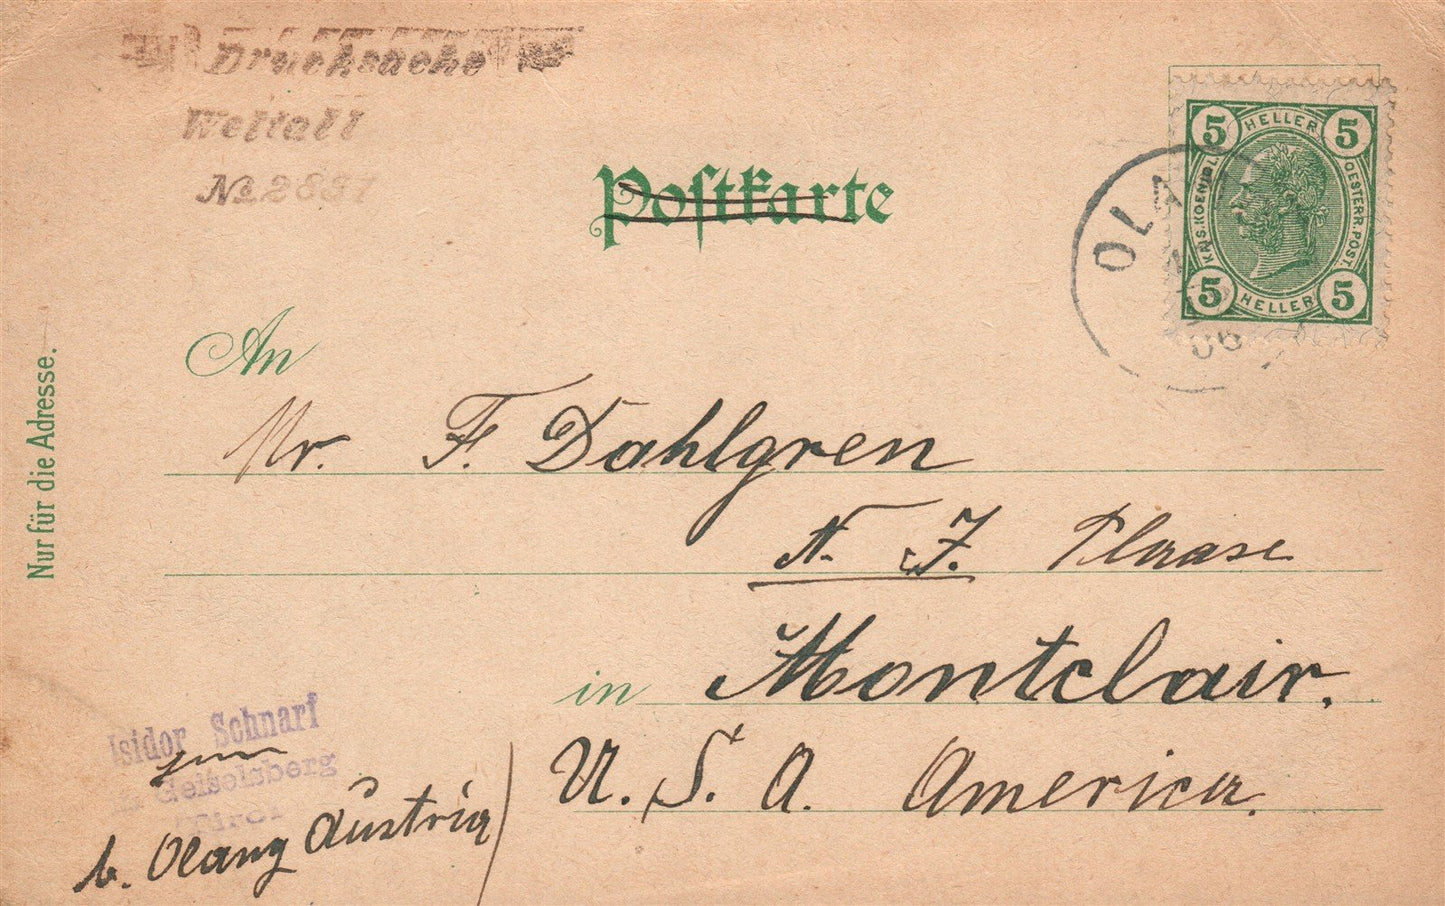 Drucksache
Weltall
No 2837
Postkarte
5 HELLER 5
KAIS. KOENIGL.
OESTERR. POST.
5 HELLER 5
OLA
06
Nur für die Adresse.
An
Mr. F. Dahlgren
N. J. Plaase
in Montclair.
U. S. A. America.
Isidor Schnarf
jun
in Geiselsberg
Tirol
b. Olang Austria